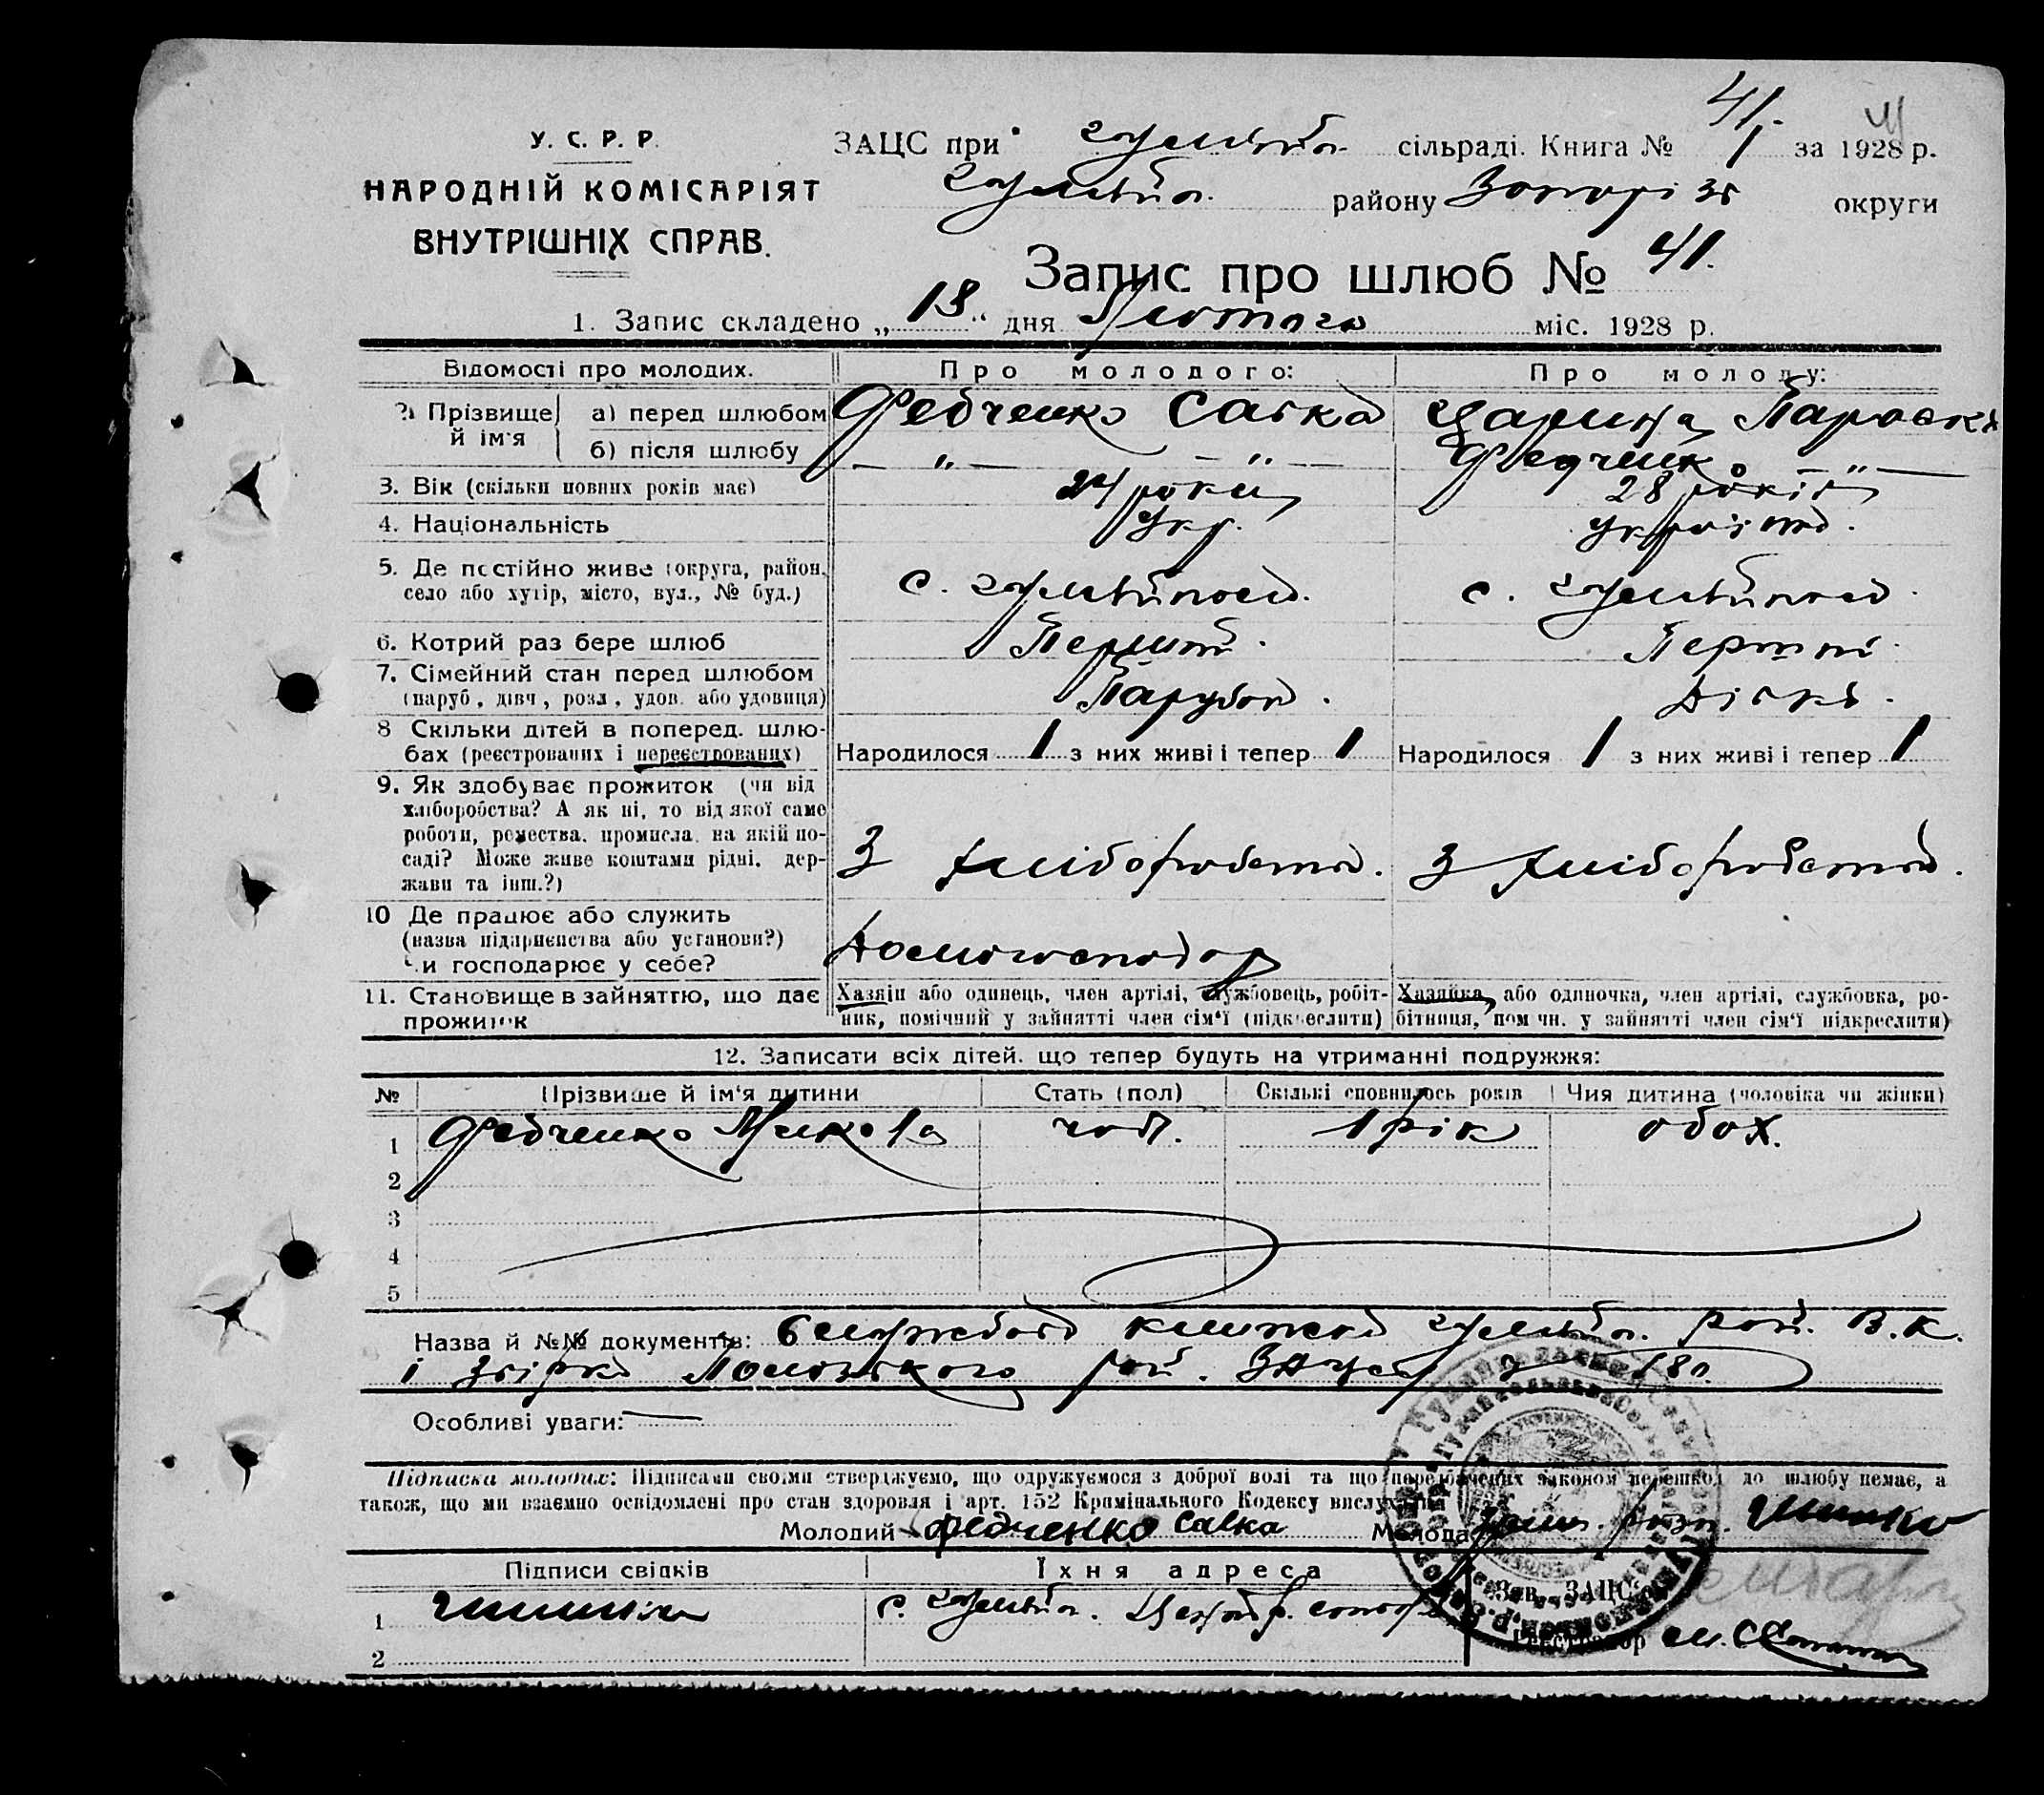 41.
У. С. Р. Р.
НАРОДНІЙ КОМІСАРІЯТ
ВНУТРІШНІХ СПРАВ.
ЗАЦС при Гуляйпол. сільраді. Книга № 1 за 1928 р.
Гуляйпіл. району Запорізь округи
Запис про шлюб № 41.
1. Запис складено „ 18 “ дня Лютого міс. 1928 р.
Відомості про молодих. Про молодого: Про молоду:
2. Прізвище й ім'я
а) перед шлюбом Федченко Савка Царина Параска
б) після шлюбу — „ — — „ — Федченко — „ —
3. Вік (скільки повних років має) 24 роки 28 років
4. Національність Укр.
5. Де постійно живе (округа, район,
село або хутір, місто, вул., № буд.) с. Гуляйполе. с. Гуляйполе.
6. Котрий раз бере шлюб Перший. Перший.
7. Сімейний стан перед шлюбом
(паруб., дівч., розл., удов. або удовиця) Парубок.
8 Скільки дітей в поперед. шлю-
бах (реєстрованих і нереєстрованих) Народилося 1 з них живі і тепер 1 Народилося 1 з них живі і тепер 1
9. Як здобуває прожиток (чи від
хліборобства? А як ні, то від якої саме
роботи, ремества, промисла, на якій по-
саді? Може живе коштами рідні, дер-
жави та інш.?) З хліборобства. З хліборобства.
10 Де працює або служить
(назва підприємства або установи?)
Чи господарює у себе? Домогосподар
11. Становище в зайняттю, що дає
прожиток
Хазяїн або одинець, член артілі, службовець, робіт-
ник, помічний у зайнятті член сім'ї (підкреслити)
Хазяйка, або одиночка, член артілі, службовка, ро-
бітниця, помічн. у зайнятті член сім'ї підкреслити)
12. Записати всіх дітей, що тепер будуть на утриманні подружжя:
№ Прізвище й ім'я дитини Стать (пол) Скількі сповнилось років Чия дитина (чоловіка чи жінки)
1 Федченко Микола чол. 1 рік обох.
2
3
4
5
Назва й №№ документів: книжка Гуляйпіл. рай. В. К.
і рай. ЗАЦСу
Особливі уваги: —
Підписка молодих: Підписами своїми стверджуємо, що одружуємося з доброї волі та що передбачених законом перешкод до шлюбу немає, а
також, що ми взаємно освідомлені про стан здоровля і арт. 152 Кримінального Кодексу вислухали
Молодий Федченко Савка Молода
Підписи свідків Їхня адреса
1 с. Гуляйпол.
2
Зав. ЗАЦС:
Реєстратор